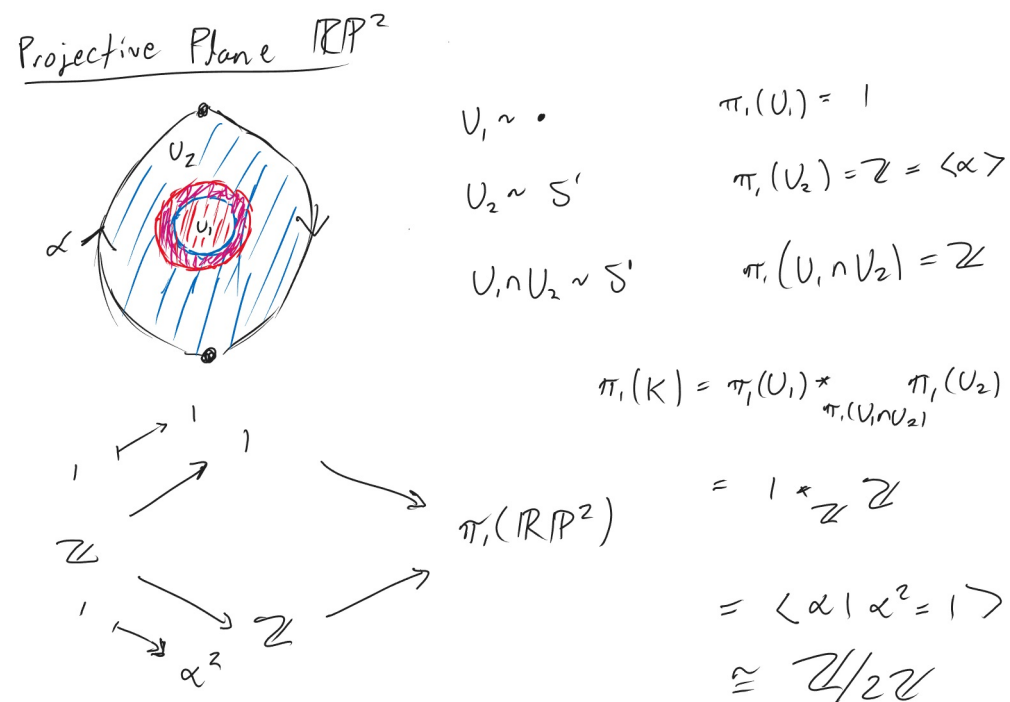 Projective Plane ℝℙ²
U₂
U₁
α
U₁ ~ •
π₁(U₁) = 1
U₂ ~ S¹
π₁(U₂) = ℤ = <α>
U₁∩U₂ ~ S¹
π₁(U₁∩U₂) = ℤ
π₁(K) = π₁(U₁) *_{π₁(U₁∩U₂)} π₁(U₂)
= 1 *_ℤ ℤ
= <α | α² = 1>
≅ ℤ/2ℤ
1 ↦ 1
1
ℤ
π₁(ℝℙ²)
ℤ
1 ↦ α²